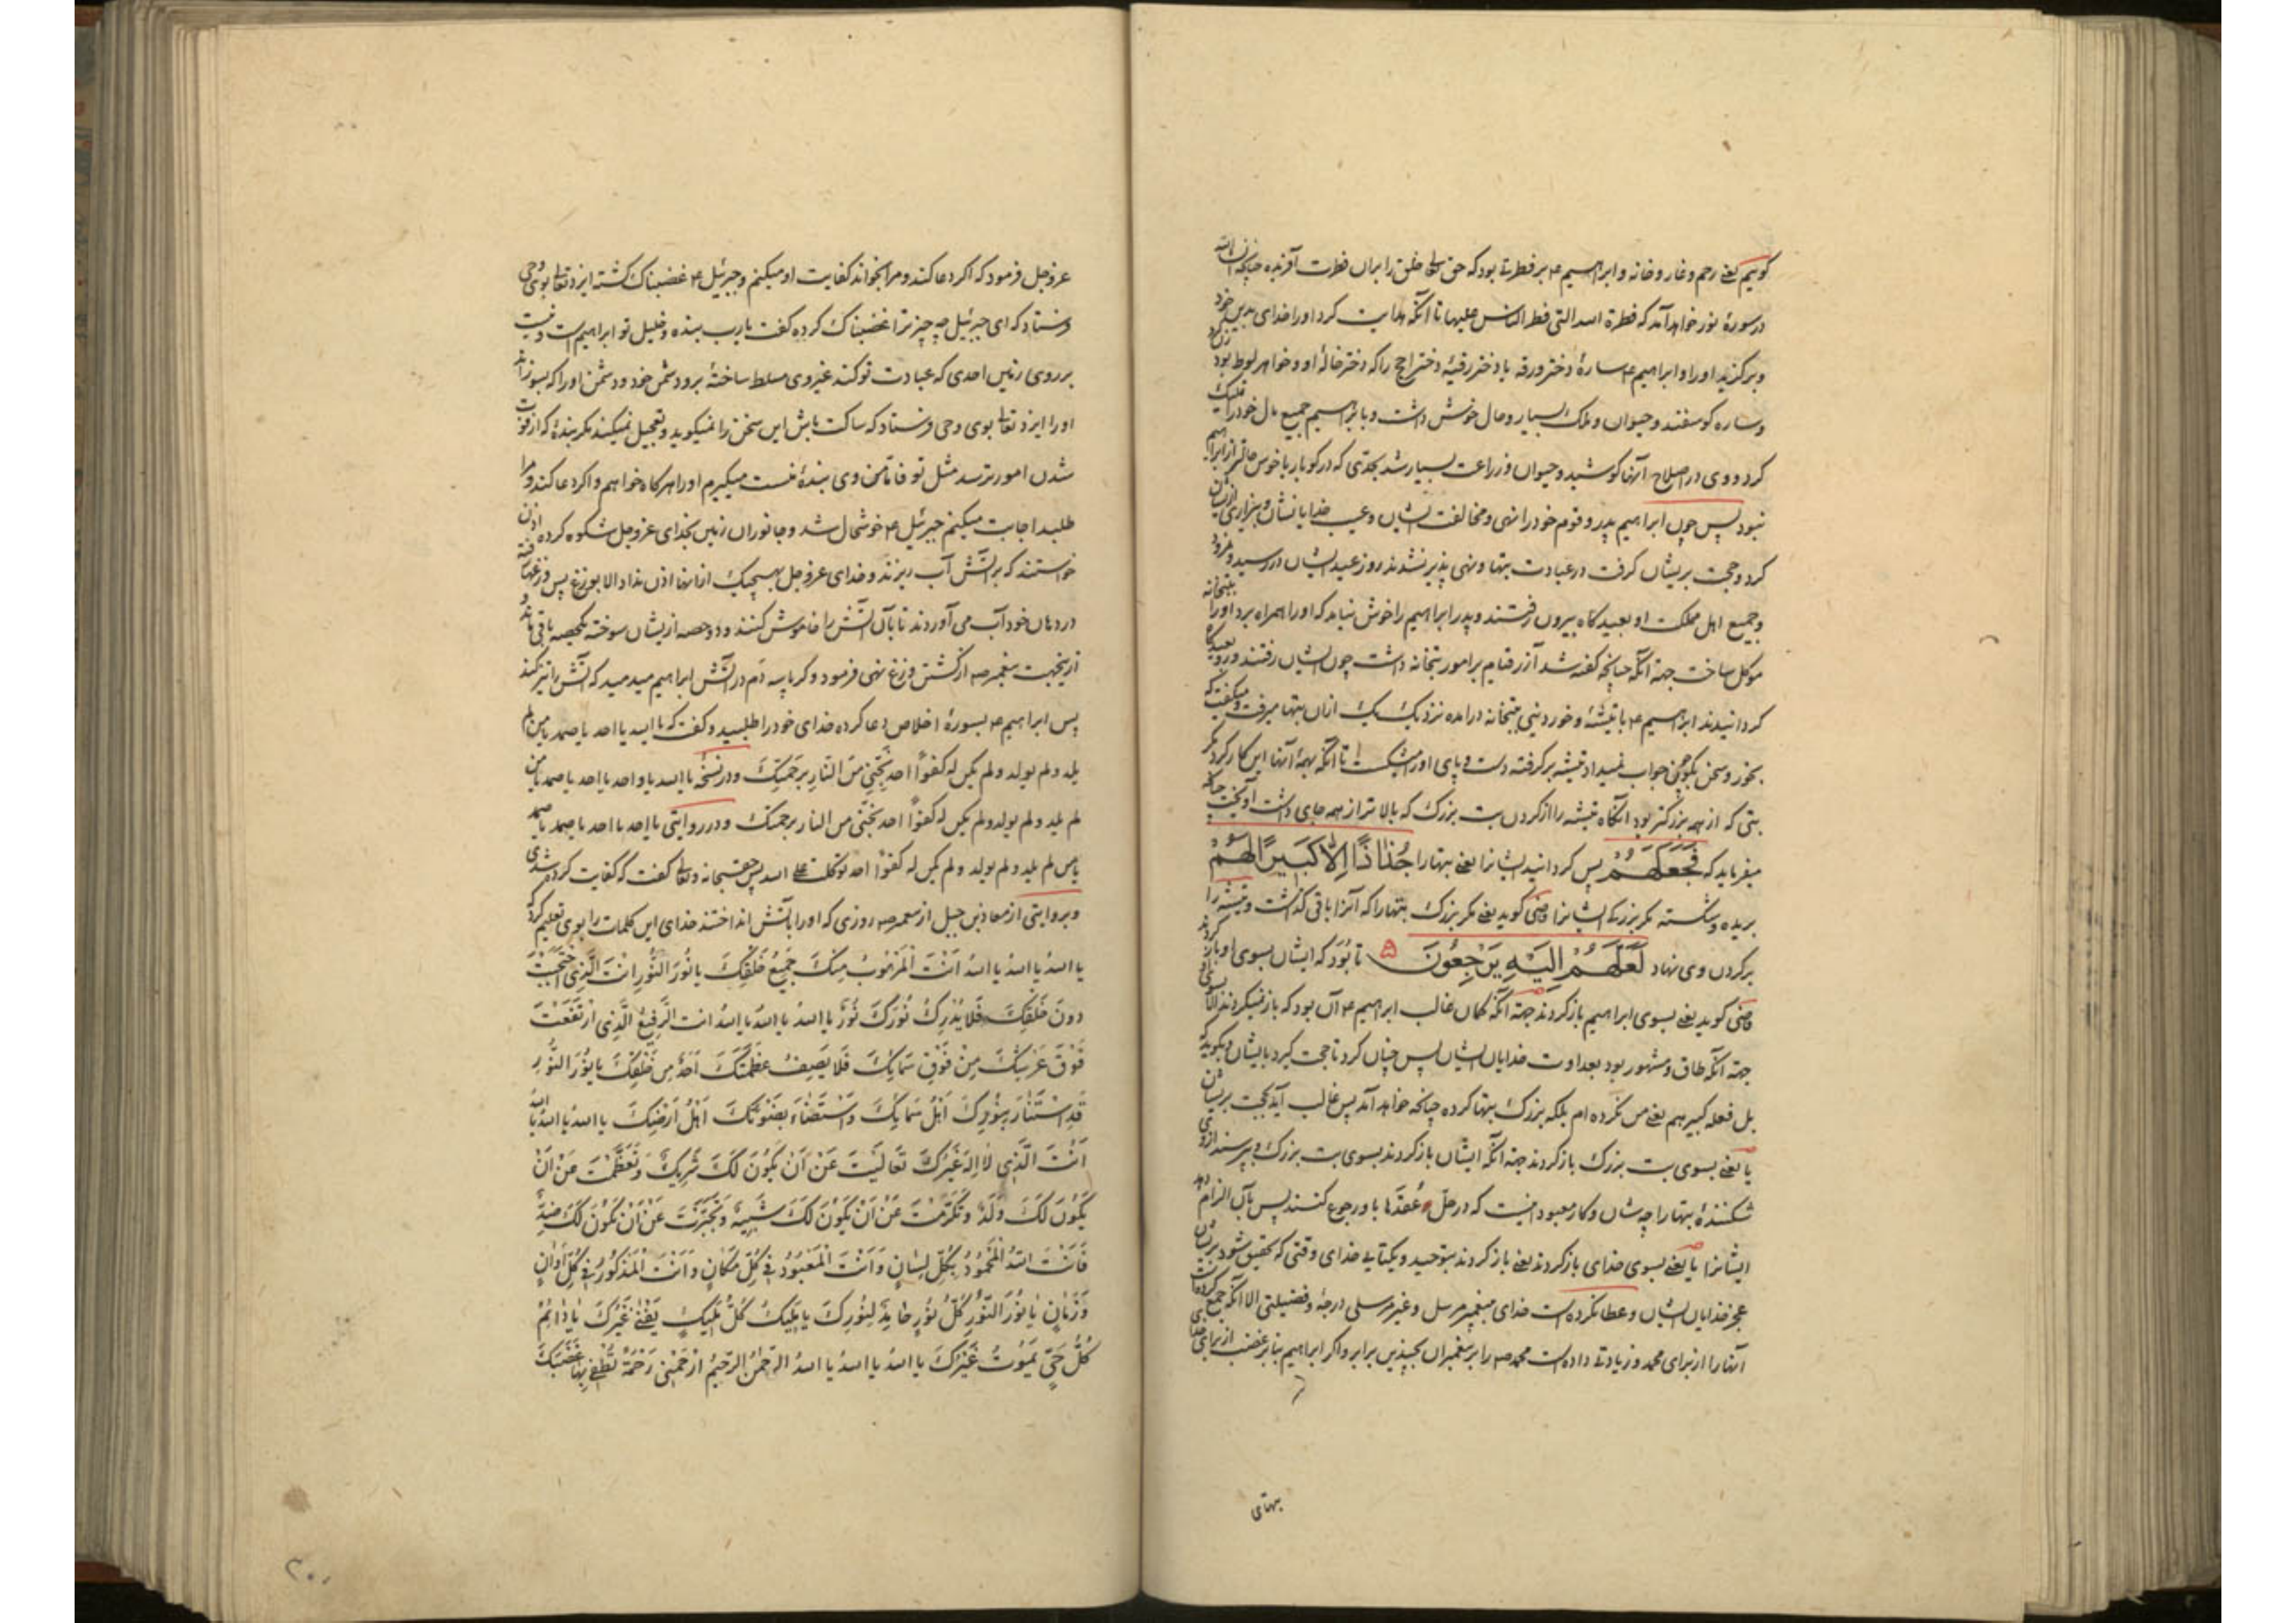 کوییم یعنی رحم و غار و خانه و ابراهیم ع بر فطرتی بود که حق تعالی خلق را بران فطرت آفریده چنانکه ان شاء الله
در سورهٔ نور خواهد آمد که فطرة الله التی فطر الناس علیها تا آنکه هدایت کرد او را خدای بدین خود
و برکزید او را و ابراهیم ع سارهٔ دختر ورقه یا دختر رقیهٔ دختر لاحج را که دختر خالهٔ او و خواهر لوط بود
و ساره کوسفند و حیوان و ملک بسیار و حال خوش داشت و با ابراهیم جمیع مال خود را تملیک
کرد و وی در اصلاح آنها کوشید و حیوان و زراعت بسیار شد بحدی که در کوبا ربا خوش حالتر از ابراهیم
نبود پس چون ابراهیم پدر و قوم خود را نهی و مخالفت ایشان و عیب خدایانشان و بیزاری ازیشان
کرد و حجت بریشان کرفت در عبادت بتها و نهی پذیر نشدند روز عید ایشان در رسید و نمرود
و جمیع اهل مملکت او بعیدکاه بیرون رفتند و پدر ابراهیم را خوش نیامد که او را همراه برد او را بتخانه
موکل ساخت جهة آنکه چنانچه کفته شد آزر قیام بر امور بتخانه داشت چون ایشان رفتند و رو بعیدکاه
کردانیدند ابراهیم ع با تیشهٔ و خوردنیی ببتخانه درامده نزد یک یک ازان بتها میرفت و میکفت که
بخور و سخن بکو چون جواب نمیداد تیشه برکرفته دست و پای او را میشکست تا آنکه بهمهٔ آنها این کار کرد مکر
بتی که از همه بزرکتر بود آنکاه تیشه را از کردن بت بزرک که بالاتر از همه جای داشت آویخت چنانکه
میفرماید که فَجَعَلَهُمْ پس کردانید ایشانرا یعنی بتها را جُذَاذًا إِلَّا كَبِيرًا لَهُمْ
بریده و شکسته مکر بزرک ایشانرا قاضی کوید یعنی مکر بزرک بتها را که آنرا باقی کذاشت و تیشه را
بر کردن وی نهاد لَعَلَّهُمْ إِلَيْهِ يَرْجِعُونَ تا بُوَد که ایشان بسوی او باز کردند
قاضی کوید یعنی بسوی ابراهیم باز کردند جهة آنکه کمان غالب ابراهیم ع آن بود که باز نمیکردند الا بسوی وی
جهة آنکه طاق و مشهور بود بعداوت خدایان ایشان پس چنان کرد تا حجت کیرد بایشان و بکوید که
بل فعله کبیرهم یعنی من نکرده ام بلکه بزرک بتها کرده چنانچه خواهد آمد پس غالب آید بحجت بریشان
یا یعنی بسوی بت بزرک باز کردند جهة آنکه ایشان باز کردند بسوی بت بزرک و پرسند ازوی
شکنندهٔ بتها را چه شان و کار معبود اینست که در حلّ عُقدَها باو رجوع کنند پس بآن الزام دهد
ایشانرا یا یعنی بسوی خدای باز کردند یعنی باز کردند بتوحید و یکتایی خدای وقتی که تحقیق شود بریشان
عجز خدایان ایشان و عطا نکرده است خدای پیغمبر مرسل و غیر مرسلی درجهٔ و فضیلتی الا آنکه جمع کرده است
آنها را از برای محمد و زیادتی داده است محمد ص را بر پیغمبران بچندین برابر و اکر ابراهیم بنا بر غضب از برای خدا
بهتای
عز و جل فرمود که اکر دعا کند و مرا بخواند کفایت او میکنم و جبرئیل ع غضبناک کشته ایزد تعالی بوی وحی
فرستاد که ای جبرئیل چه چیز ترا غضبناک کرده کفت یارب بنده و خلیل تو ابراهیم است و نیست
بر روی زمین احدی که عبادت تو کند غیر وی مسلط ساختهٔ برو دشمن خود و دشمن او را که بسوزاند
او را ایزد تعالی بوی وحی فرستاد که ساکت باش این سخن را نمیکوید و تعجیل نمیکند مکر بندهٔ که از فوت
شدن امور ترسد مثل تو فاما من وی بندهٔ منست میکیرم او را هرکاه خواهم و اکر دعا کند و مرا
طلبد اجابت میکنم جبرئیل ع خوشحال شد و جانوران زمین بخدای عز و جل شکوه کرده اذن
خواستند که بر آتش آب ریزند و خدای عز و جل بهیچیک ازانها اذن نداد الا بوزغ پس وزغها رفته
در دهان خود آب می آوردند تا بآن آتش را خاموش کنند و دو حصه ازیشان سوخته یکحصه باقی ماند و
ازینجهت پیغمبر ص از کشتن وزغ نهی فرمود و کرباسه دَم در آتش ابراهیم میدمید که آتش را تیز کند
پس ابراهیم ع بسورهٔ اخلاص دعا کرده خدای خود را طلبید و کفت که یا الله یا احد یا صمد یا من لم
یلد ولم یولد ولم یکن له کفوًا احد نَجِّنِی مِنَ النّارِ بِرَحمَتِکَ و در نسخهٔ یا الله یا واحد یا احد یا صمد یا من
لم یلد ولم یولد ولم یکن له کفوًا احد نَجِّنی من النار برحمتک و در روایتی یا الله یا واحد یا احد یا صمد
یا من لم یلد ولم یولد ولم یکن له کفوًا احد توکلت علی الله پس حق سبحانه و تعالی کفت که کفایت کرده شدی
و بروایتی از معاذ بن جبل از پیغمبر ص روزی که او را بآتش انداختند خدای این کلمات را بوی تعلیم کرد
یا اللهُ یا اللهُ یا اللهُ اَنْتَ الْمَرْهُوبُ مِنْكَ جَمِیعُ خَلْقِكَ یا نُورَ النُّورِ اَنْتَ الَّذِی احْتَجَبْتَ
دُونَ خَلْقِكَ فَلَا یُدْرِكُ نُورَكَ نُورٌ یا اللهُ یا اللهُ یا اللهُ انت الرَّفِیعُ الَّذِی ارْتَفَعْتَ
فَوْقَ عَرْشِكَ مِنْ فَوْقِ سَمَائِكَ فَلَا یَصِفُ عَظَمَتَكَ اَحَدٌ مِنْ خَلْقِكَ یا نُورَ النُّورِ
قَدِ اسْتَنَارَ بِنُورِكَ اَهْلُ سَمَائِكَ وَاسْتَضَاءَ بِضَوْئِكَ اَهْلُ اَرْضِكَ یا اللهُ یا اللهُ یا اللهُ
اَنْتَ الَّذِی لَا اِلهَ غَیْرُكَ تَعَالَیْتَ عَنْ اَنْ یَكُونَ لَكَ شَرِیكٌ وَتَعَظَّمْتَ عَنْ اَنْ
یَكُونَ لَكَ وَلَدٌ وَتَكَرَّمْتَ عَنْ اَنْ یَكُونَ لَكَ شَبِیهٌ وَتَجَبَّرْتَ عَنْ اَنْ یَكُونَ لَكَ ضِدٌّ
فَاَنْتَ اللهُ الْمَحْمُودُ بِكُلِّ لِسَانٍ وَاَنْتَ الْمَعْبُودُ فِی كُلِّ مَكَانٍ وَاَنْتَ الْمَذْكُورُ فِی كُلِّ اَوَانٍ
وَزَمَانٍ یَا نُورَ النُّورِ كُلُّ نُورٍ خَامِدٌ لِنُورِكَ یا مَلِیكَ كُلِّ مَلِیكٍ یَفْنَی غَیْرُكَ یَا دَائِمُ
كُلُّ حَیٍّ یَمُوتُ غَیْرُكَ یا اللهُ یا اللهُ یا اللهُ الرَّحْمنُ الرَّحِیمُ ارْحَمْنِی رَحْمَةً تُطْفِیُ بِهَا غَضَبَكَ
۲۰۱